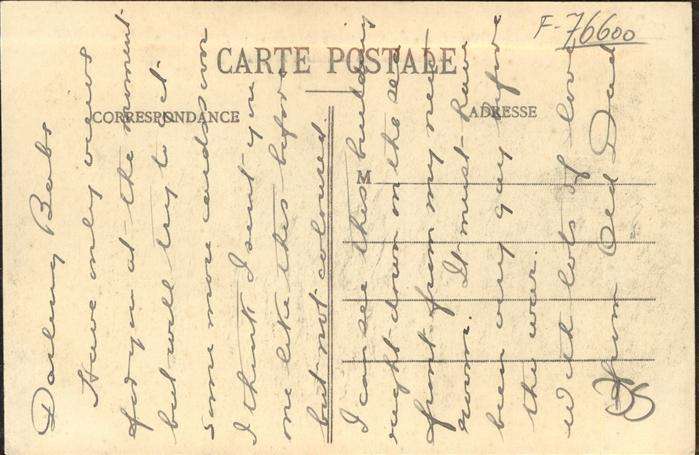 F-76600
CARTE POSTALE
CORRESPONDANCE
ADRESSE
M
Darling Babs
Have only views
for you at the moment
but will try to get
some more cards soon
I think I sent you
one like this before
but not coloured.
I can see this building
right down on the sea
front from my new
room. It must have
been very gay before
the war.
With lots of love
from Old Dad